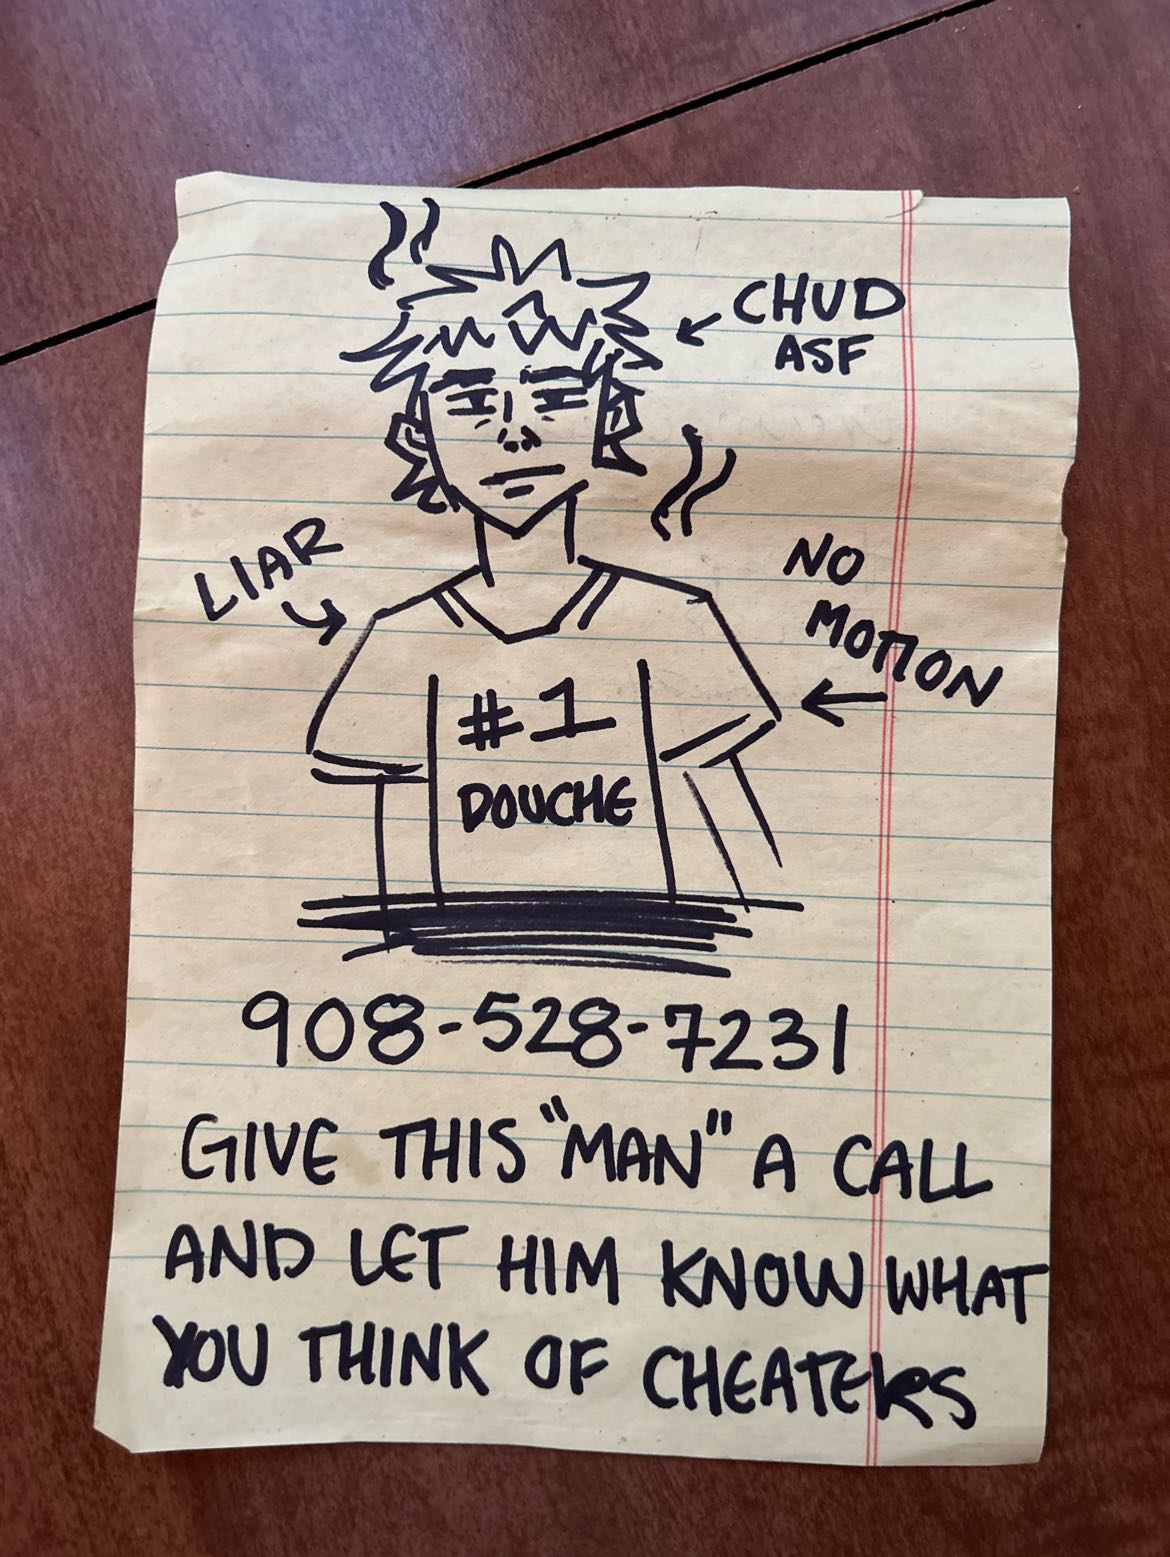 CHUD
ASF
LIAR
NO
MOTION
#1
DOUCHE
908-528-7231
GIVE THIS "MAN" A CALL
AND LET HIM KNOW WHAT
YOU THINK OF CHEATERS